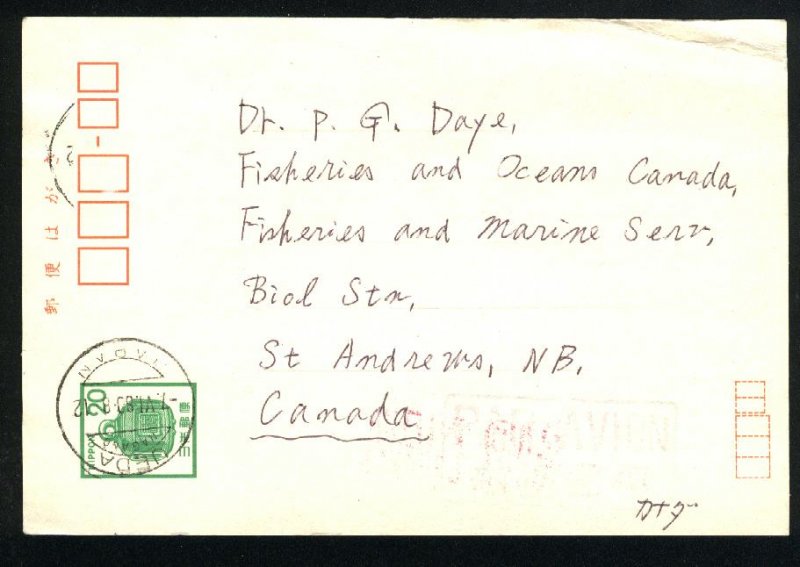 Dr. P. G. Daye,
Fisheries and Oceans Canada,
Fisheries and Marine Serv,
Biol Stn,
St Andrews, NB,
Canada
郵便はがき
JAPAN
20
NIPPON
日本郵便